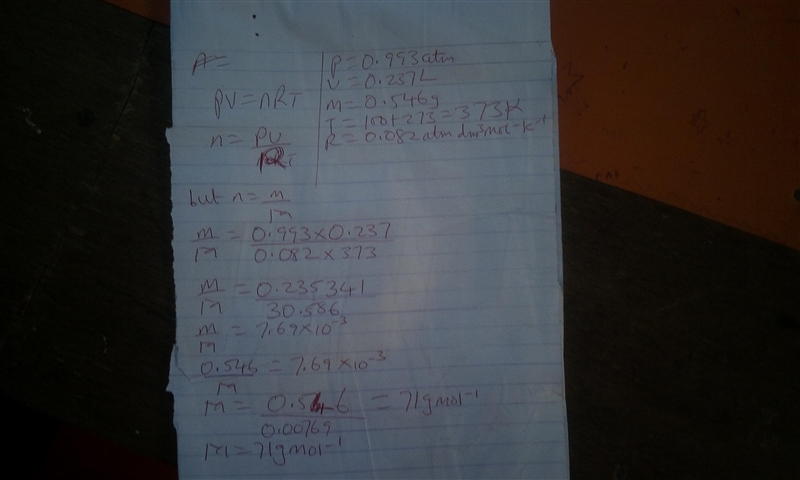 P=
PV=nRT
n= PV / RT
P=0.993atm
V=0.237L
M=0.546g
T=100+273=373K
R=0.082atm dm³mol⁻K⁻¹
but n= m / M
m / M = 0.993×0.237 / 0.082×373
m / M = 0.235341 / 30.586
m / M = 7.69×10⁻³
0.546 / M = 7.69×10⁻³
M = 0.546 / 0.00769 = 71gmol⁻¹
M=71gmol⁻¹